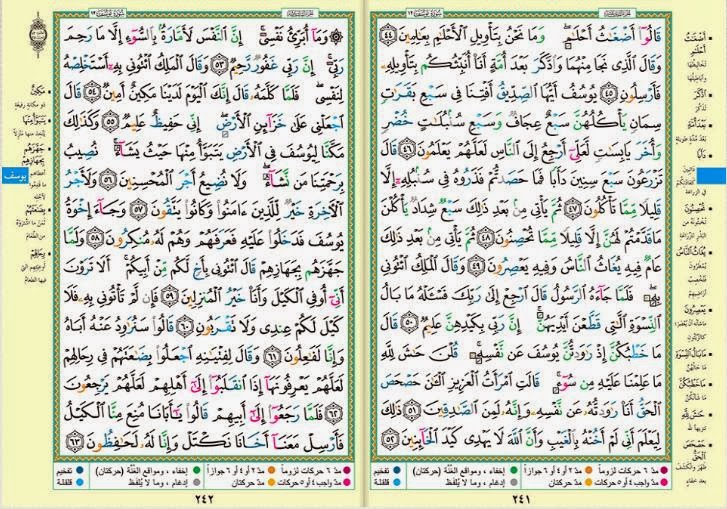 سُورَةُ يُوسُفَ ١٢
قَالُوٓا۟ أَضْغَٰثُ أَحْلَٰمٍ ۖ وَمَا نَحْنُ بِتَأْوِيلِ ٱلْأَحْلَٰمِ بِعَٰلِمِينَ ٤٤
وَقَالَ ٱلَّذِى نَجَا مِنْهُمَا وَٱدَّكَرَ بَعْدَ أُمَّةٍ أَنَا۠ أُنَبِّئُكُم بِتَأْوِيلِهِۦ
فَأَرْسِلُونِ ٤٥ يُوسُفُ أَيُّهَا ٱلصِّدِّيقُ أَفْتِنَا فِى سَبْعِ بَقَرَٰتٍ
سِمَانٍ يَأْكُلُهُنَّ سَبْعٌ عِجَافٌ وَسَبْعِ سُنۢبُلَٰتٍ خُضْرٍ
وَأُخَرَ يَابِسَٰتٍ لَّعَلِّىٓ أَرْجِعُ إِلَى ٱلنَّاسِ لَعَلَّهُمْ يَعْلَمُونَ ٤٦ قَالَ
تَزْرَعُونَ سَبْعَ سِنِينَ دَأَبًا فَمَا حَصَدتُّمْ فَذَرُوهُ فِى سُنۢبُلِهِۦٓ إِلَّا
قَلِيلًا مِّمَّا تَأْكُلُونَ ٤٧ ثُمَّ يَأْتِى مِنۢ بَعْدِ ذَٰلِكَ سَبْعٌ شِدَادٌ يَأْكُلْنَ
مَا قَدَّمْتُمْ لَهُنَّ إِلَّا قَلِيلًا مِّمَّا تُحْصِنُونَ ٤٨ ثُمَّ يَأْتِى مِنۢ بَعْدِ ذَٰلِكَ
عَامٌ فِيهِ يُغَاثُ ٱلنَّاسُ وَفِيهِ يَعْصِرُونَ ٤٩ وَقَالَ ٱلْمَلِكُ ٱئْتُونِى
بِهِۦ ۖ فَلَمَّا جَآءَهُ ٱلرَّسُولُ قَالَ ٱرْجِعْ إِلَىٰ رَبِّكَ فَسْـَٔلْهُ مَا بَالُ
ٱلنِّسْوَةِ ٱلَّٰتِى قَطَّعْنَ أَيْدِيَهُنَّ ۚ إِنَّ رَبِّى بِكَيْدِهِنَّ عَلِيمٌ ٥٠ قَالَ
مَا خَطْبُكُنَّ إِذْ رَٰوَدتُّنَّ يُوسُفَ عَن نَّفْسِهِۦ ۚ قُلْنَ حَٰشَ لِلَّهِ
مَا عَلِمْنَا عَلَيْهِ مِن سُوٓءٍ ۚ قَالَتِ ٱمْرَأَتُ ٱلْعَزِيزِ ٱلْـَٰٔنَ حَصْحَصَ
ٱلْحَقُّ أَنَا۠ رَٰوَدتُّهُۥ عَن نَّفْسِهِۦ وَإِنَّهُۥ لَمِنَ ٱلصَّٰدِقِينَ ٥١ ذَٰلِكَ
لِيَعْلَمَ أَنِّى لَمْ أَخُنْهُ بِٱلْغَيْبِ وَأَنَّ ٱللَّهَ لَا يَهْدِى كَيْدَ ٱلْخَآئِنِينَ ٥٢
مدّ ٦ حركات لزوماً مدّ ٢ أو ٤ أو ٦ جوازاً إخفاء، ومواقع الغُنَّة (حركتان) تفخيم
مدّ واجب ٤ أو ٥ حركات مدّ حركتان إدغام، وما لا يُلفَظ قلقلة
٢٤١
سُورَةُ يُوسُفَ ١٢
وَمَآ أُبَرِّئُ نَفْسِىٓ ۚ إِنَّ ٱلنَّفْسَ لَأَمَّارَةٌۢ بِٱلسُّوٓءِ إِلَّا مَا رَحِمَ
رَبِّىٓ ۚ إِنَّ رَبِّى غَفُورٌ رَّحِيمٌ ٥٣ وَقَالَ ٱلْمَلِكُ ٱئْتُونِى بِهِۦٓ أَسْتَخْلِصْهُ
لِنَفْسِى ۖ فَلَمَّا كَلَّمَهُۥ قَالَ إِنَّكَ ٱلْيَوْمَ لَدَيْنَا مَكِينٌ أَمِينٌ ٥٤ قَالَ
ٱجْعَلْنِى عَلَىٰ خَزَآئِنِ ٱلْأَرْضِ ۖ إِنِّى حَفِيظٌ عَلِيمٌ ٥٥ وَكَذَٰلِكَ
مَكَّنَّا لِيُوسُفَ فِى ٱلْأَرْضِ يَتَبَوَّأُ مِنْهَا حَيْثُ يَشَآءُ ۚ نُصِيبُ
بِرَحْمَتِنَا مَن نَّشَآءُ ۖ وَلَا نُضِيعُ أَجْرَ ٱلْمُحْسِنِينَ ٥٦ وَلَأَجْرُ
ٱلْـَٔاخِرَةِ خَيْرٌ لِّلَّذِينَ ءَامَنُوا۟ وَكَانُوا۟ يَتَّقُونَ ٥٧ وَجَآءَ إِخْوَةُ
يُوسُفَ فَدَخَلُوا۟ عَلَيْهِ فَعَرَفَهُمْ وَهُمْ لَهُۥ مُنكِرُونَ ٥٨ وَلَمَّا
جَهَّزَهُم بِجَهَازِهِمْ قَالَ ٱئْتُونِى بِأَخٍ لَّكُم مِّنْ أَبِيكُمْ ۚ أَلَا تَرَوْنَ
أَنِّىٓ أُوفِى ٱلْكَيْلَ وَأَنَا۠ خَيْرُ ٱلْمُنزِلِينَ ٥٩ فَإِن لَّمْ تَأْتُونِى بِهِۦ فَلَا
كَيْلَ لَكُمْ عِندِى وَلَا تَقْرَبُونِ ٦٠ قَالُوا۟ سَنُرَٰوِدُ عَنْهُ أَبَاهُ
وَإِنَّا لَفَٰعِلُونَ ٦١ وَقَالَ لِفِتْيَٰنِهِ ٱجْعَلُوا۟ بِضَٰعَتَهُمْ فِى رِحَالِهِمْ
لَعَلَّهُمْ يَعْرِفُونَهَآ إِذَا ٱنقَلَبُوٓا۟ إِلَىٰٓ أَهْلِهِمْ لَعَلَّهُمْ يَرْجِعُونَ
٦٢ فَلَمَّا رَجَعُوٓا۟ إِلَىٰٓ أَبِيهِمْ قَالُوا۟ يَٰٓأَبَانَا مُنِعَ مِنَّا ٱلْكَيْلُ
فَأَرْسِلْ مَعَنَآ أَخَانَا نَكْتَلْ وَإِنَّا لَهُۥ لَحَٰفِظُونَ ٦٣
مدّ ٦ حركات لزوماً مدّ ٢ أو ٤ أو ٦ جوازاً إخفاء، ومواقع الغُنَّة (حركتان) تفخيم
مدّ واجب ٤ أو ٥ حركات مدّ حركتان إدغام، وما لا يُلفَظ قلقلة
٢٤٢
يوسف